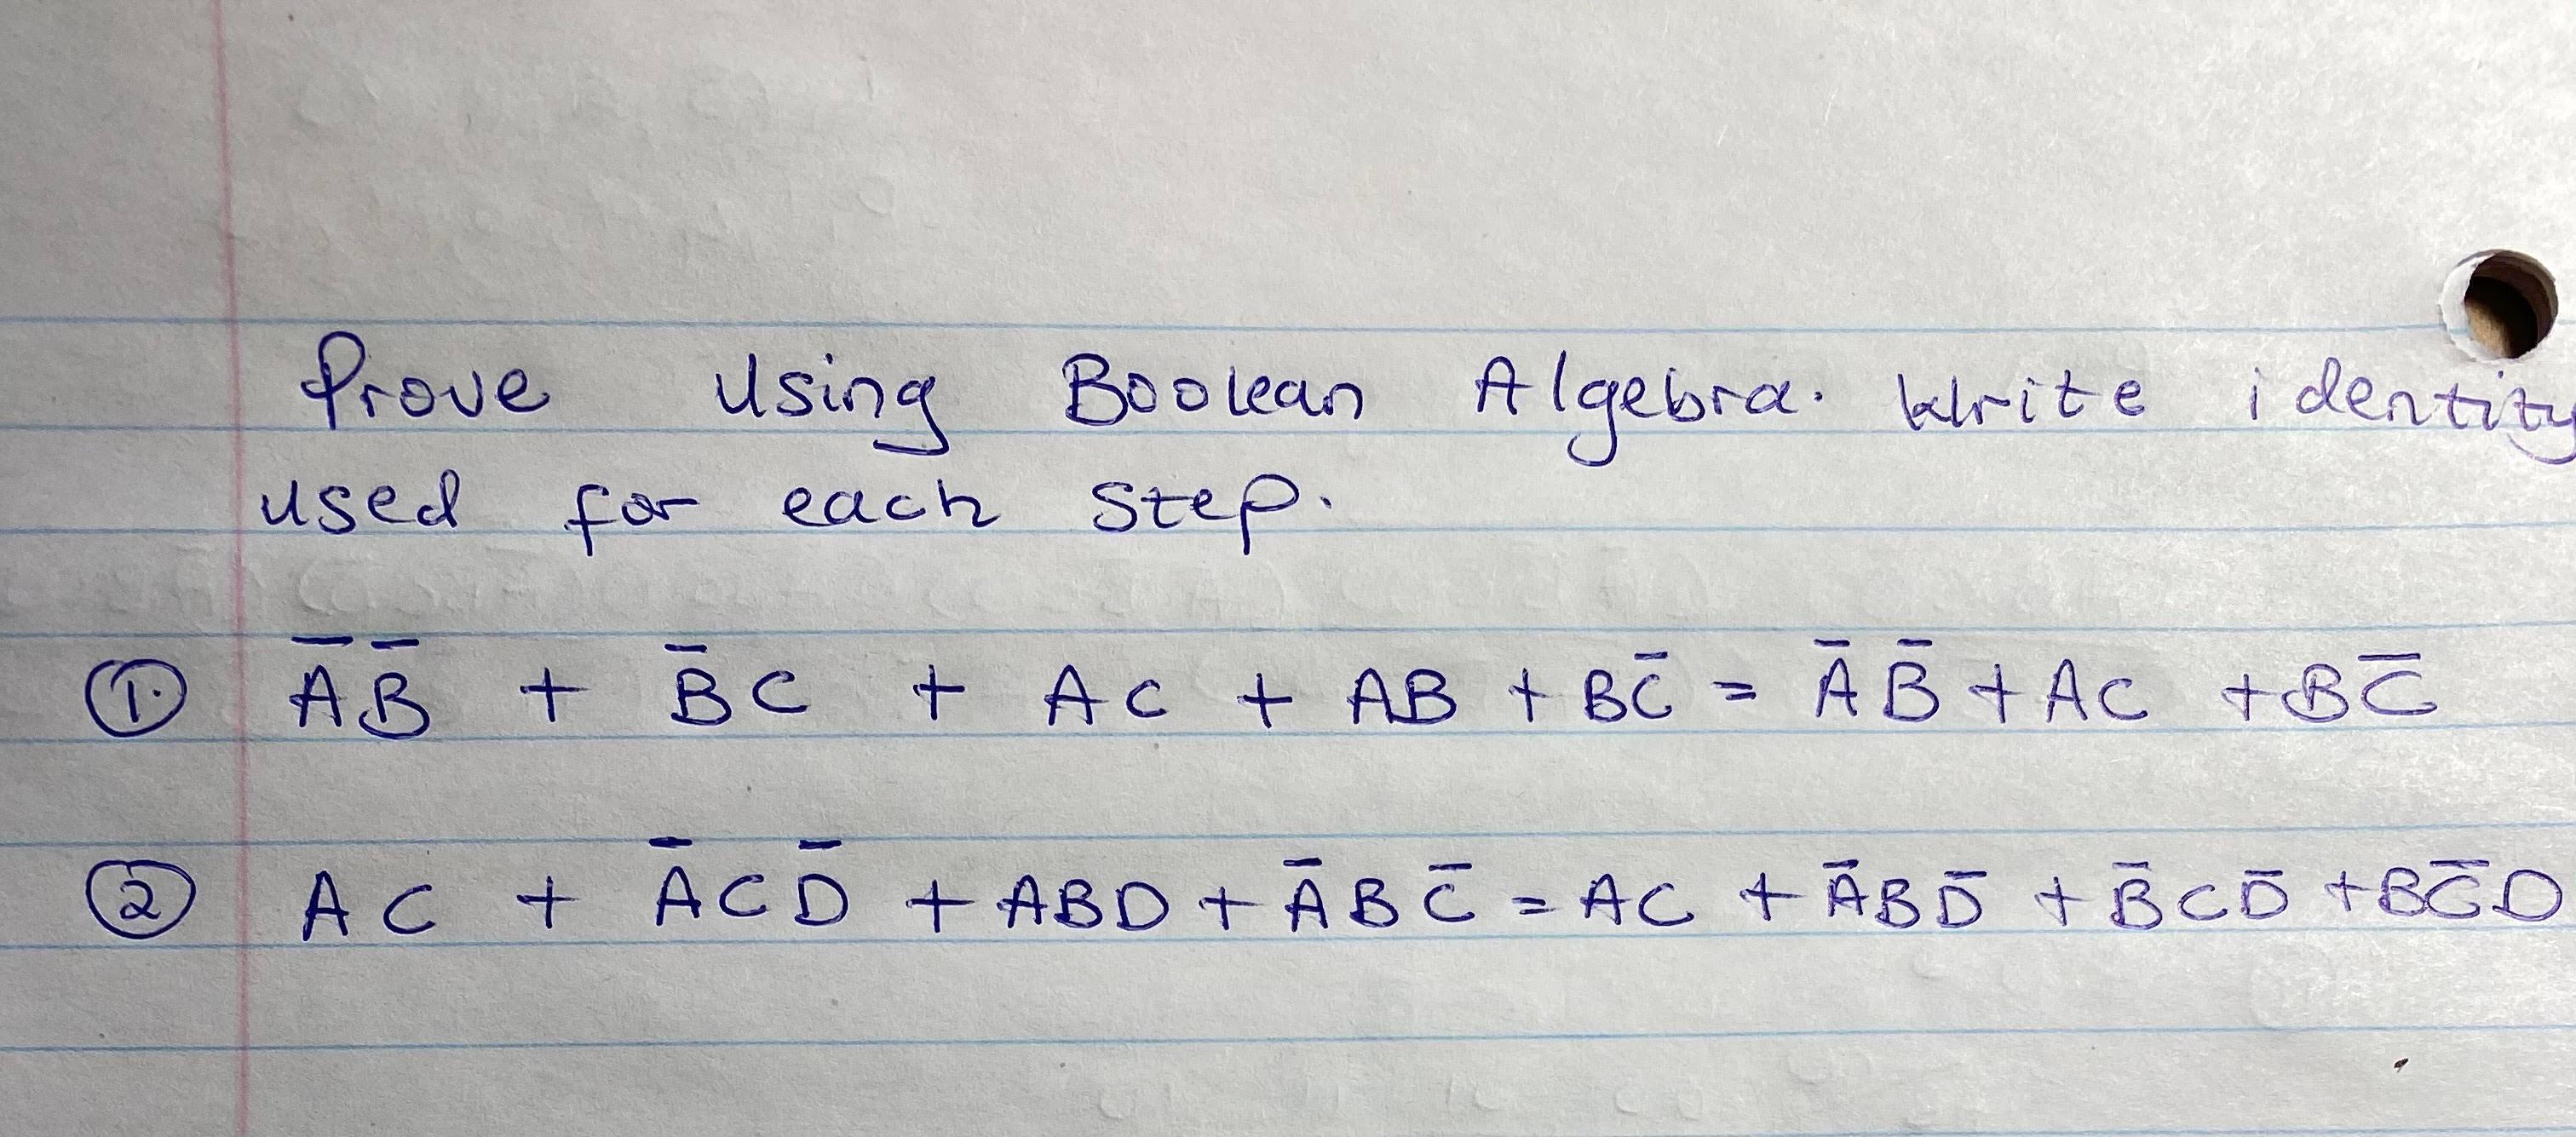 Prove Using Boolean Algebra. Write identity
used for each step.
① A̅B̅ + B̅C + AC + AB + BC̅ = A̅B̅ + AC + BC̅
② AC + A̅CD̅ + ABD + A̅BC̅ = AC + A̅BD̅ + B̅CD̅ + BC̅D